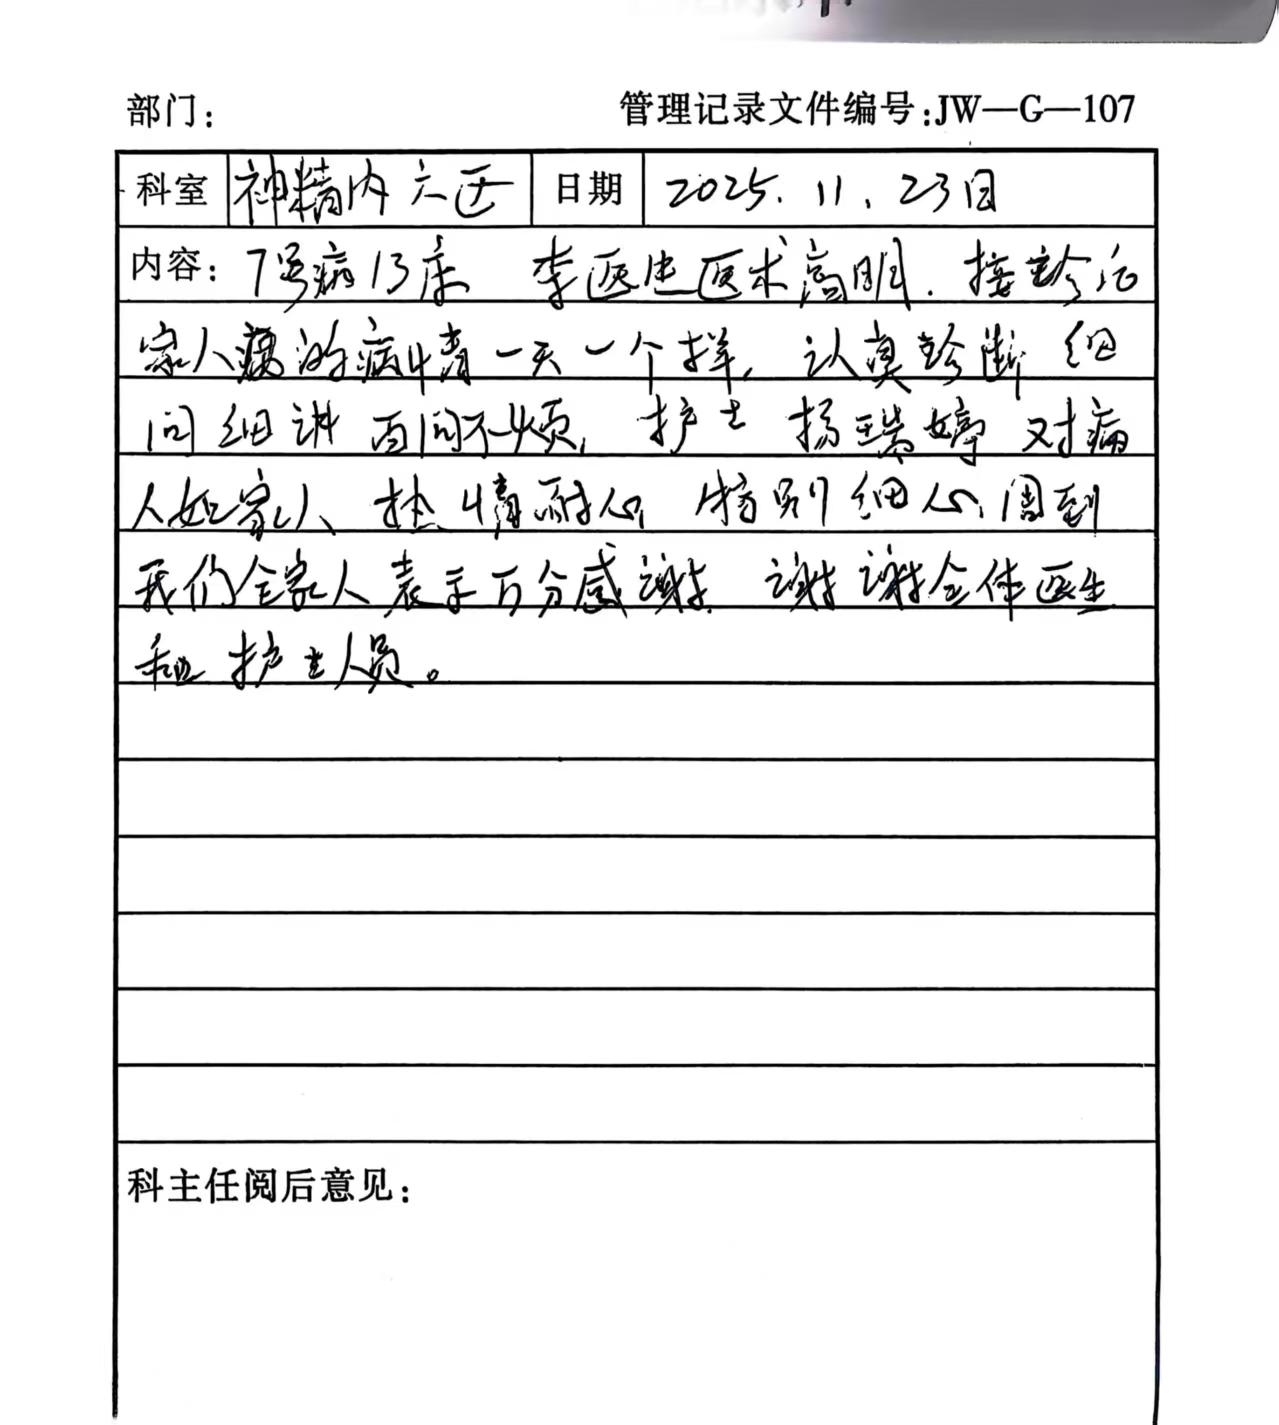 部门：
管理记录文件编号：JW—G—107
科室 神精内六区 日期 2025.11.23日
内容：7号病13床 李医生医术高明．接诊后
家人的病情一天一个样，认真诊断 细
问细讲 百问不烦，护士 杨瑞婷 对病
人如家人、热情耐心，特别细心、周到
我们全家人表示万分感谢．谢谢全体医生
和护士人员。
科主任阅后意见：